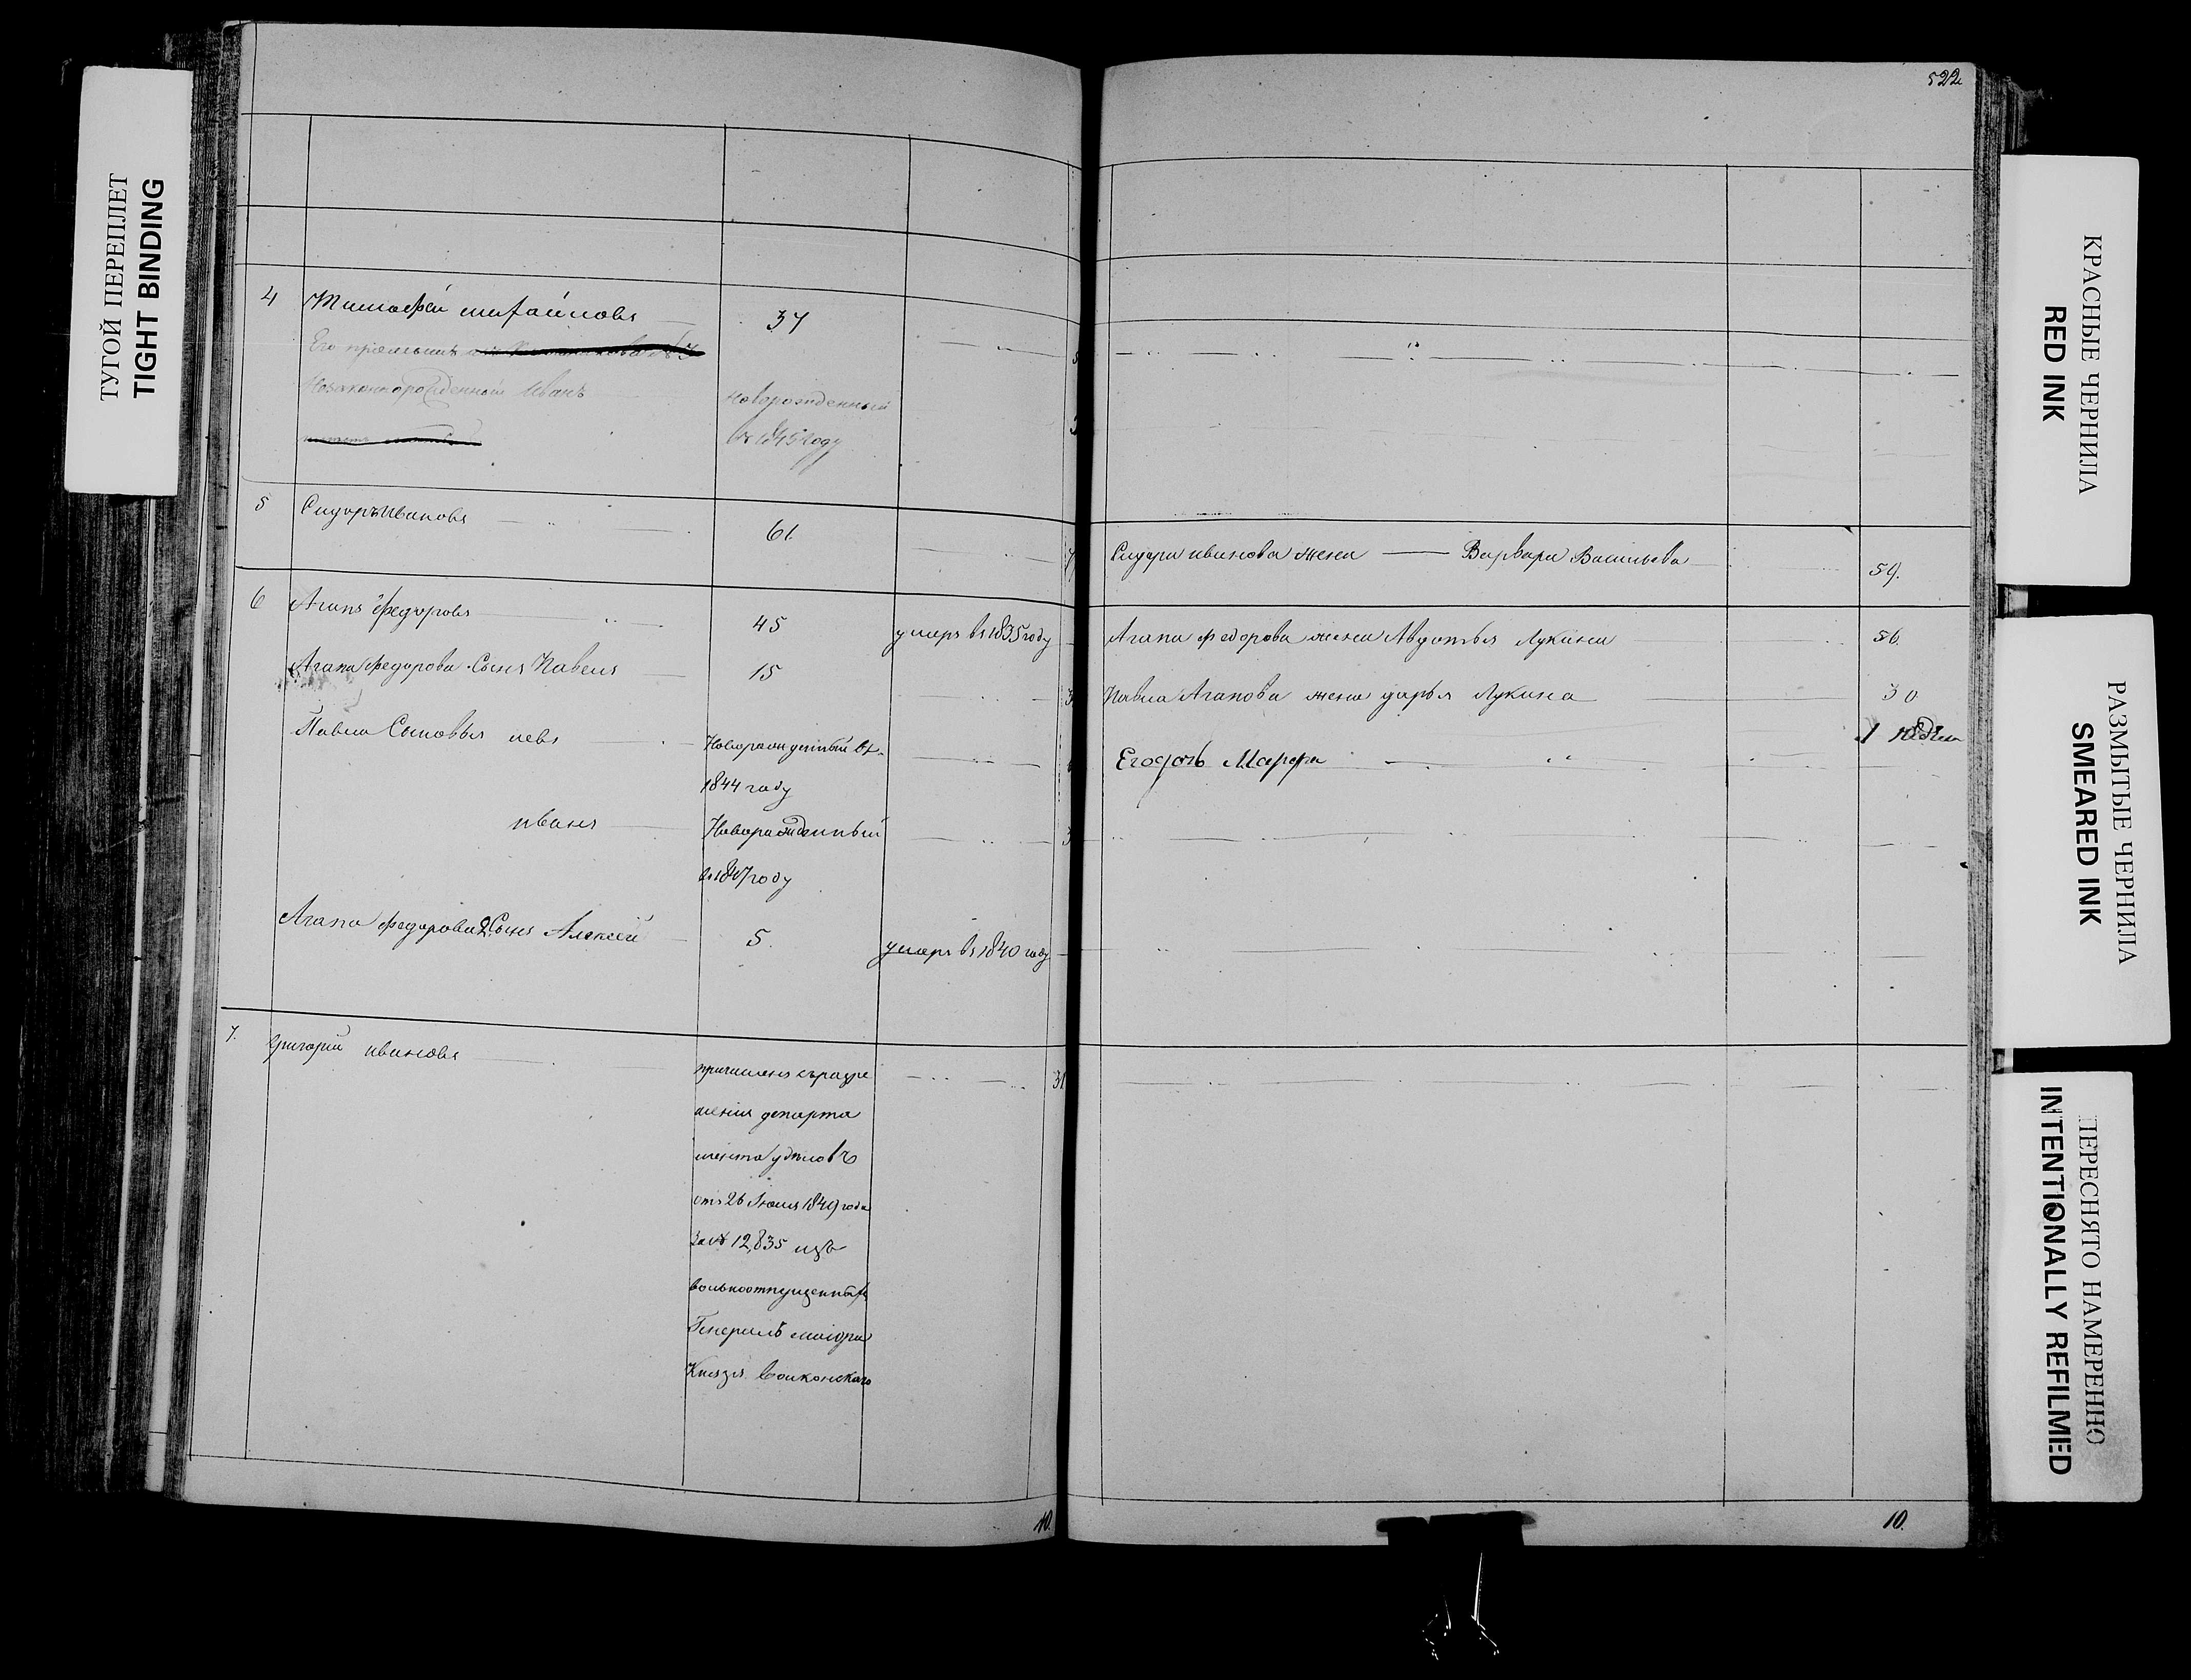 522
4 Тимофей михайловъ 37
Его приемышъ
Незаконнорожденный Иванъ новорожденный
въ 1845 году
5 Сидоръ Ивановъ 61.
Сидора иванова жена Варвара Васильева 59.
6 Агапъ Федоровъ 45 умеръ въ 1835 году
Агапа Федорова жена Авдотья Лукина 56.
Агапа Федорова Сынъ Павелъ 15
Павла Агапова жена дарья Лукина 30
Павла Сыновья левъ Новорожденный въ
1844 году
Его дочь Марфа 1 недели
иванъ Новорожденный
въ 1847 году
Агапа Федорова 2. Сынъ Алексей 5. умеръ въ 1840 году
7. григорий ивановъ причисленъ съ разре
шения департа 31
мента уделовъ
отъ 26 Июля 1849 года
за № 12,835 изъ
вольноотпущенныхъ
Генералъ маиора
Князя Волконскаго
10.
10.
ТУГОЙ ПЕРЕПЛЕТ
TIGHT BINDING
КРАСНЫЕ ЧЕРНИЛА
RED INK
РАЗМЫТЫЕ ЧЕРНИЛА
SMEARED INK
ПЕРЕСНЯТО НАМЕРЕННО
INTENTIONALLY REFILMED